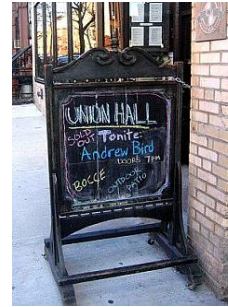 UNION HALL
SOLD OUT Tonite:
Andrew Bird
DOORS 7PM
BOCCE
OUTDOOR PATIO